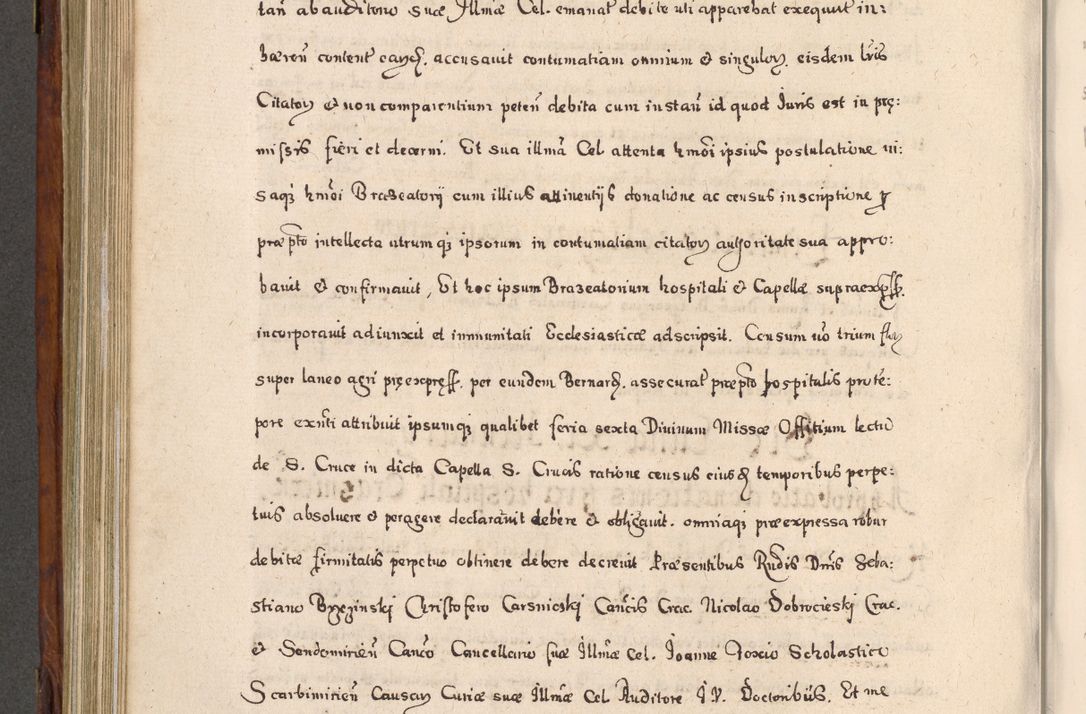 tan̄ ab auditorio suæ Illmæ Cel. emanat̄ debite uti apparebat exequut̄ in:
hæren̄ content̄ eaꝝdē. accusavit contumatiam omnium & singuloꝝ. eisdem lr̄is
Citatoꝝ & non comparentium peten̄ debita cum instan̄ id quod Iuris est in prę:
missis fieri et decerni. Et sua illmā Cel attenta hmōi ipsius postulatione ui:
saqꝫ hmōi Braseatorij cum illius attinentijs donatione ac census inscriptione ꝑ
præpt̄o intellecta utrumqꝫ ipsorum in contumatiam citatoꝝ authoritate sua appro:
bauit & confirmauit, Et hoc ipsum Brazeatorium hospitali & Capellæ supraexp̄ss.
incorporauit adiunxit et immunitati Ecclesiasticæ adscripsit. Censum uō trium flor
super laneo agri pręexpręss. per eundem Bernard. assecurat̄ præpt̄o hospitalis pro té:
pore exn̄ti attribuit ipsumqꝫ qualibet feria sexta Diuinum Missæ Offitium lectū
de S. Cruce in dicta Capella S. Crucis ratione census eiusd temporibus perpe:
tuis absoluere & peragere declarauit debere & obligauit. omniaqꝫ præexpressa robur
debitæ firmitatis perpetuo obtinere debere decreuit Præsentibus Rn̄dis Dn̄is Seba:
stiano Brzezinski Christofero Carsnicski Can̄cis Crac. Nicolao Dobrocieski Crac.
& Sendomirien̄ Canco Cancellario suæ Illmæ Cel. Joanne Foxio Scholastico
Scarbimirien̄ Causaꝝ Curiæ suæ Illmæ Cel Auditore I. V. Doctoribus. Et me